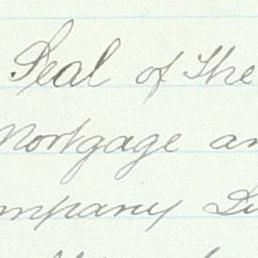 Seal of the
Mortgage an
mpany Li